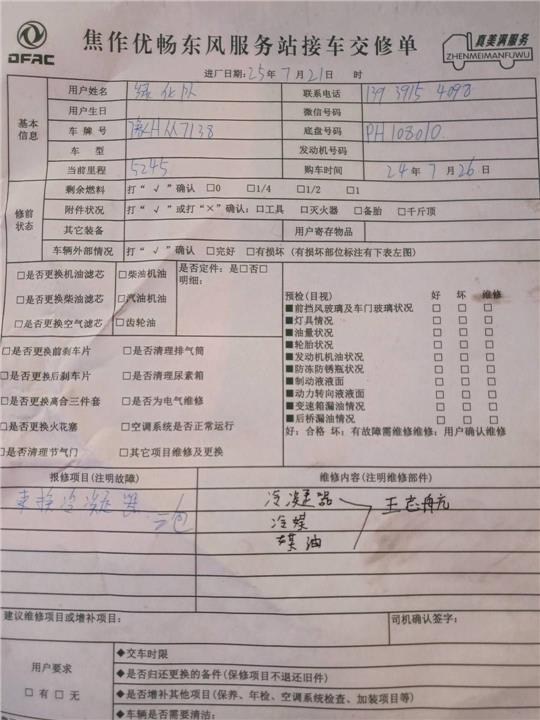 DFAC
焦作优畅东风服务站接车交修单
真美满服务
ZHENMEIMANFUWU
进厂日期:25年7月21日 时
基本信息
用户姓名 绿化队 联系电话 139 3915 4098
用户生日 微信号码
车牌号 豫H 7138 底盘号码 PH108010
车型 发动机号码
当前里程 5245 购车时间 24年7月26日
修前状态
剩余燃料 打“√”确认 □0 □1/4 □1/2 □1
附件状况 打“√”或打“×”确认:□工具 □灭火器 □备胎 □千斤顶
其它装备 用户寄存物品
车辆外部情况 打“√”确认 □完好 □有损坏(有损坏部位标注有下表左图)
□是否更换机油滤芯 □柴油机油 是否定件:是□否□
明细:
□是否更换柴油滤芯 □汽油机油
□是否更换空气滤芯 □齿轮油
□是否更换前刹车片 □是否清理排气筒
□是否更换后刹车片 □是否清理尿素箱
□是否更换离合三件套 □是否为电气维修
□是否更换火花塞 □空调系统是否正常运行
□是否清理节气门 □其它项目维修及更换
预检(目视) 好 坏 维修
■前挡风玻璃及车门玻璃状况 □ □ □
■灯具情况 □ □ □
■油量状况 □ □ □
■轮胎状况 □ □ □
■发动机机油状况 □ □ □
■防冻防锈瓶状况 □ □ □
■制动液液面 □ □ □
■动力转向液液面 □ □ □
■变速箱漏油情况 □ □ □
■后桥漏油情况 □ □ □
好:合格 坏:有故障需维修维修:用户确认维修
报修项目(注明故障) 维修内容(注明维修部件)
更换冷凝器 冷凝器 王志舟亢
三包 冷媒
油
建议维修项目或增补项目: 司机确认签字:
用户要求
□有 □无
◆交车时限
◆是否归还更换的备件(保修项目不退还旧件)
◆是否增补其他项目(保养、年检、空调系统检查、加装项目等)
◆车辆是否需要清洁: